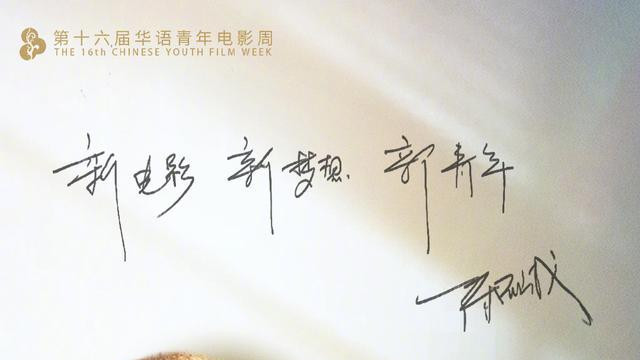 第十六届华语青年电影周
THE 16th CHINESE YOUTH FILM WEEK
新电影 新梦想 新青年